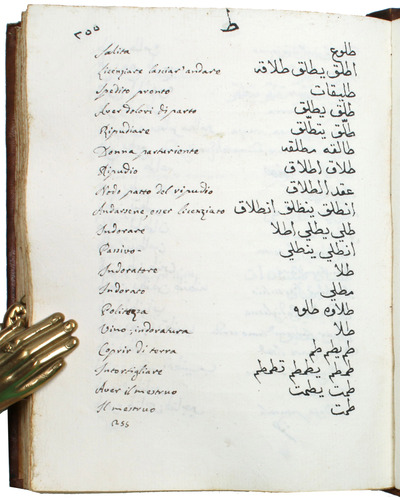 ٢٥٥ ط
Salita طلوع
Licenziare lasciar' andare اطلق يطلق طلاقه
Spedito pronto طليقات
Aver dolori di parto طلق يطلق
Ripudiare طلّق يتطلّق
Donna partoriente طالقه مطلقه
Ripudio طلاق اطلاق
Nodo patto del ripudio عقد الطلاق
Andarsene, esser licenziato انطلق ينطلق انطلاق
Indorare طلي يطلي اطلا
Passivo انطلي ينطلي
Indoratore طلا
Indorato مطلي
Politezza طلاوه طلوه
Vino, indoratura طلا
Coprir di terra طم يطم طم
Intorsigliare طمطم يطمطم تطمطم
Aver il mestruo طمت يطمت
Il mestruo طمت
255